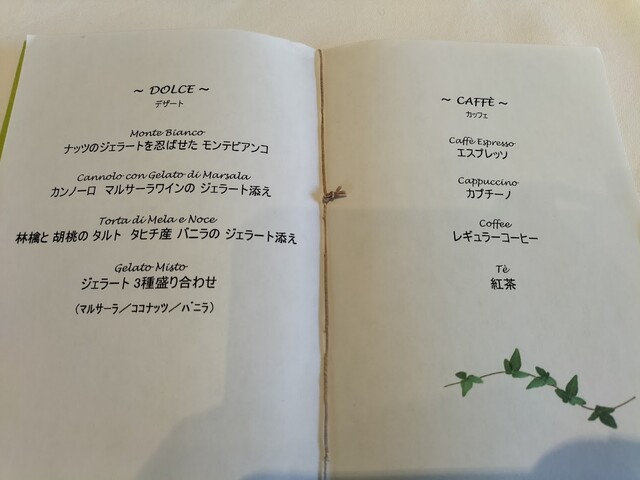 ~ DOLCE ~
デザート
Monte Bianco
ナッツのジェラートを忍ばせた モンテビアンコ
Cannolo con Gelato di Marsala
カンノーロ マルサーラワインの ジェラート添え
Torta di Mela e Noce
林檎と 胡桃の タルト タヒチ産 バニラの ジェラート添え
Gelato Misto
ジェラート 3種盛り合わせ
(マルサーラ／ココナッツ／バニラ)
~ CAFFÈ ~
カッフェ
Caffè Espresso
エスプレッソ
Cappuccino
カプチーノ
Coffee
レギュラーコーヒー
Tè
紅茶